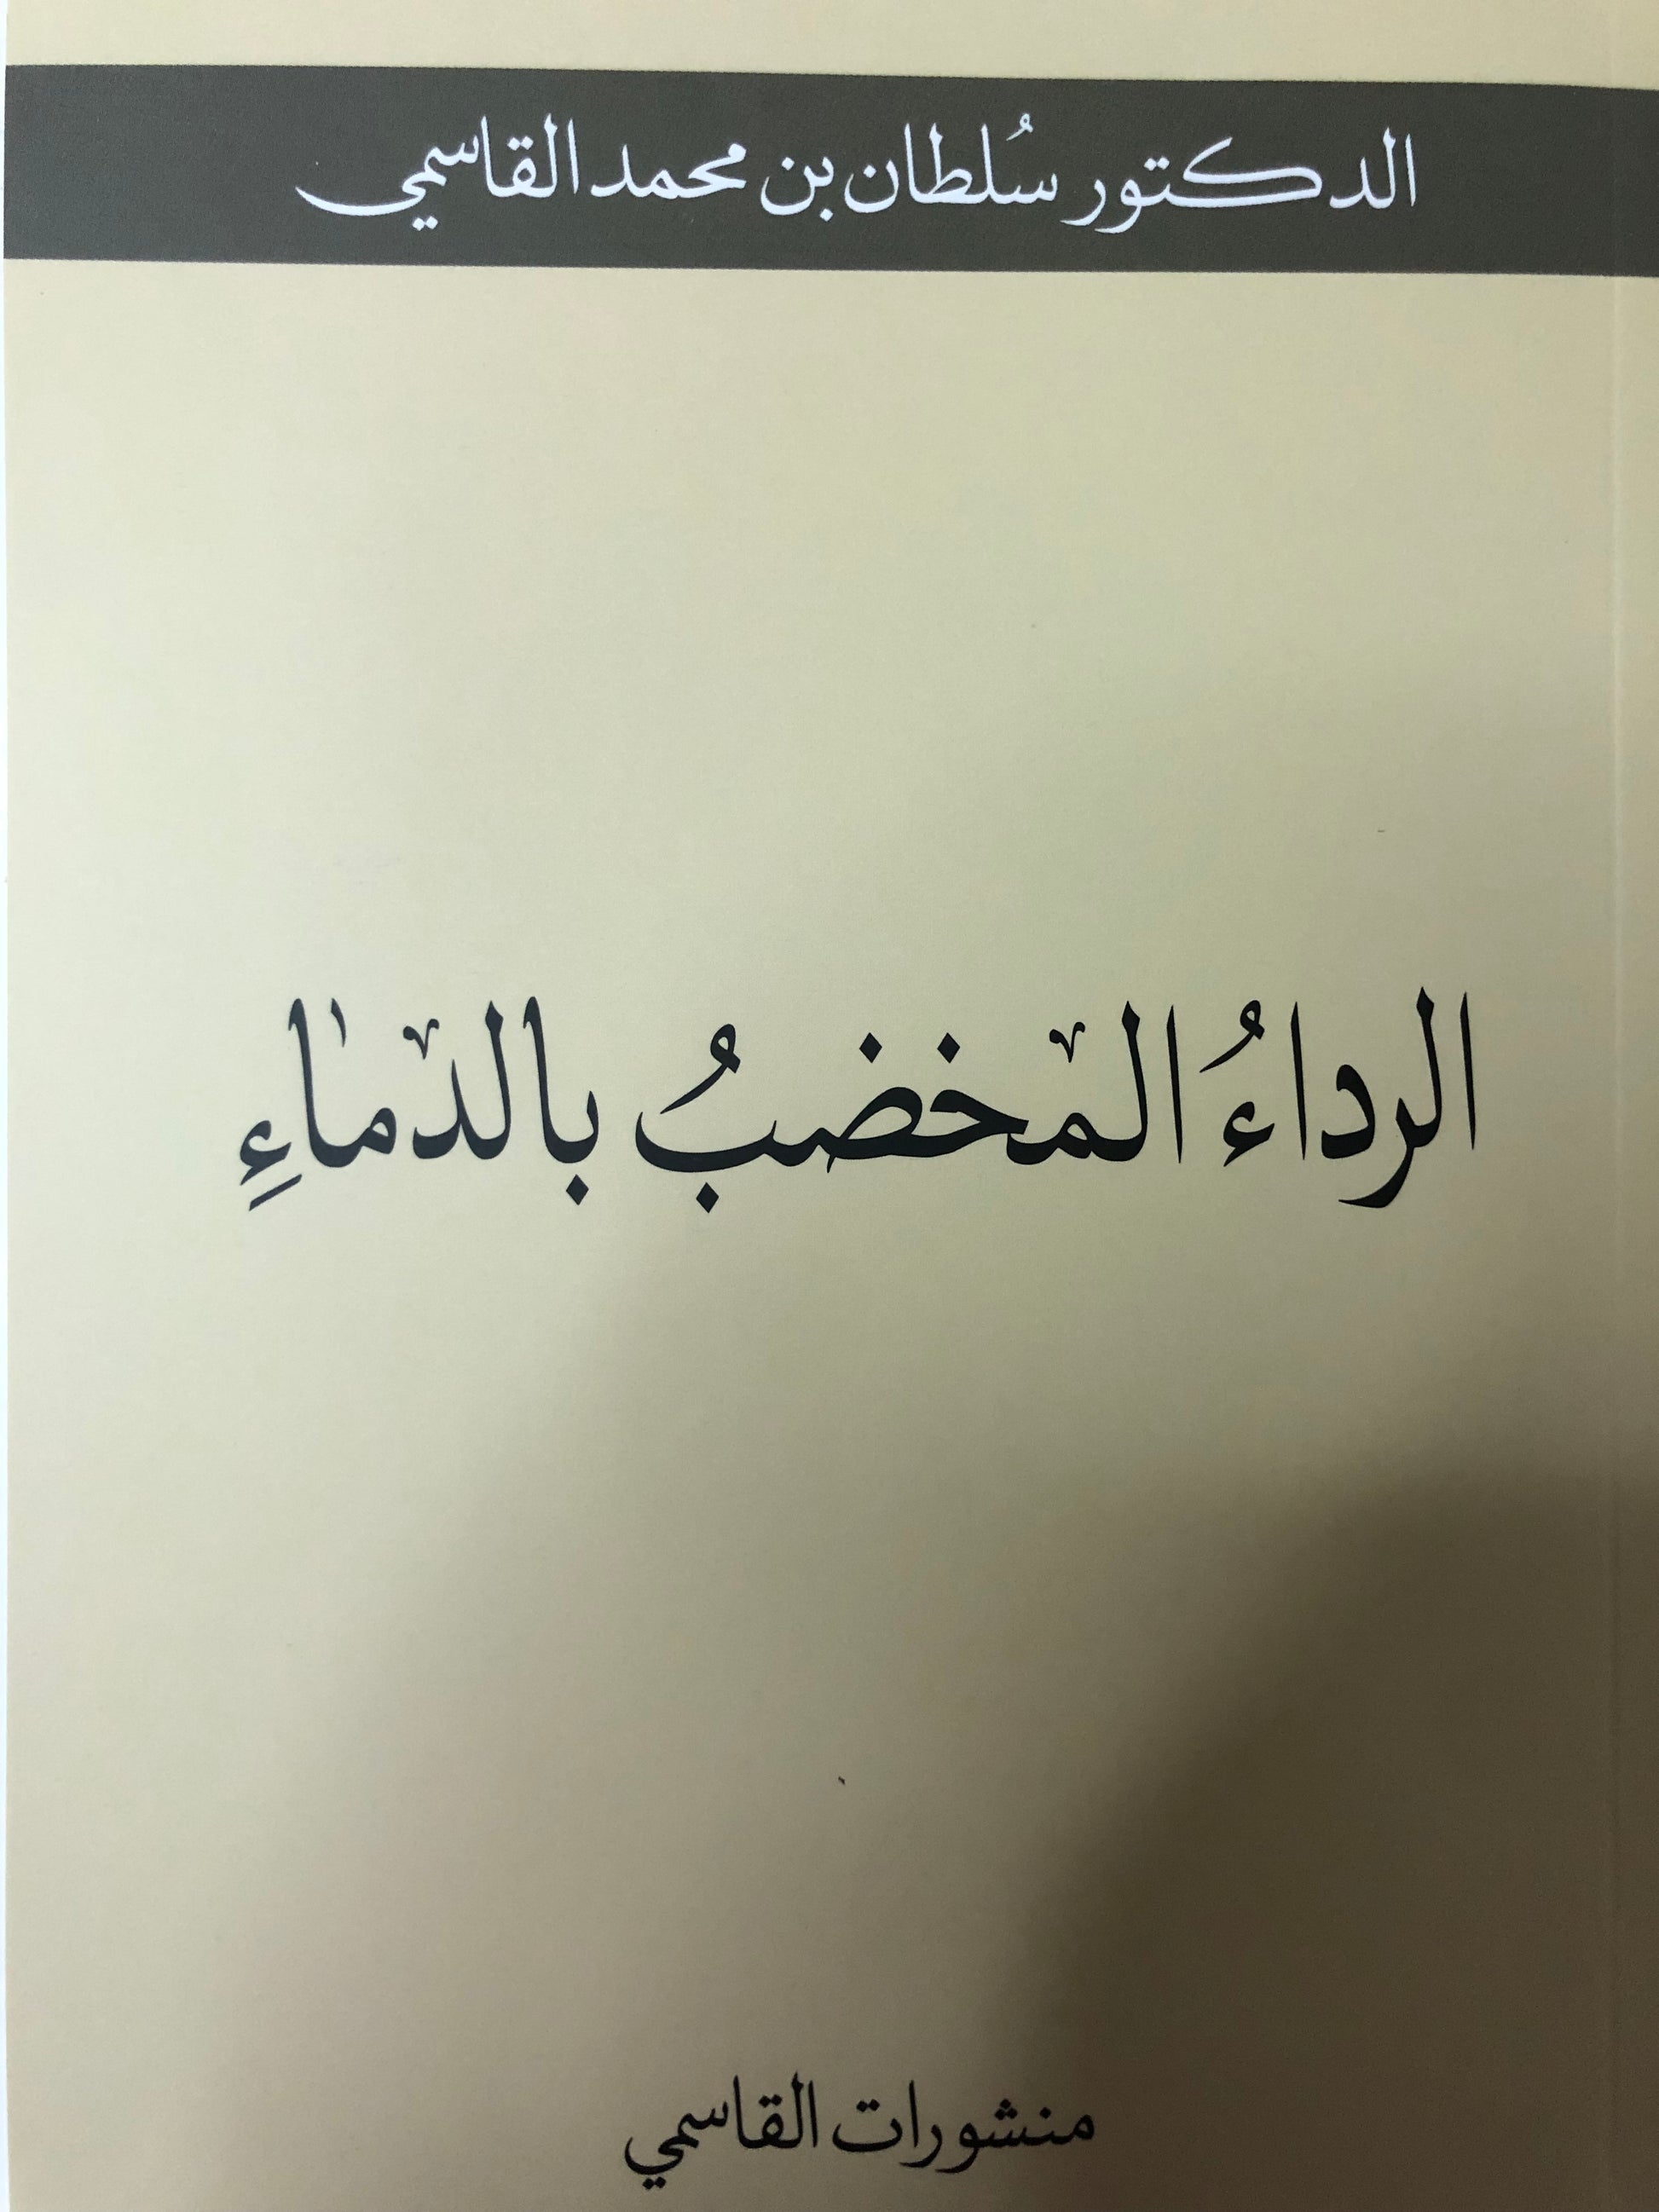 الدكتور سُلطان بن محمد القاسمي
الرداءُ المخضبُ بالدماءِ
منشورات القاسمي